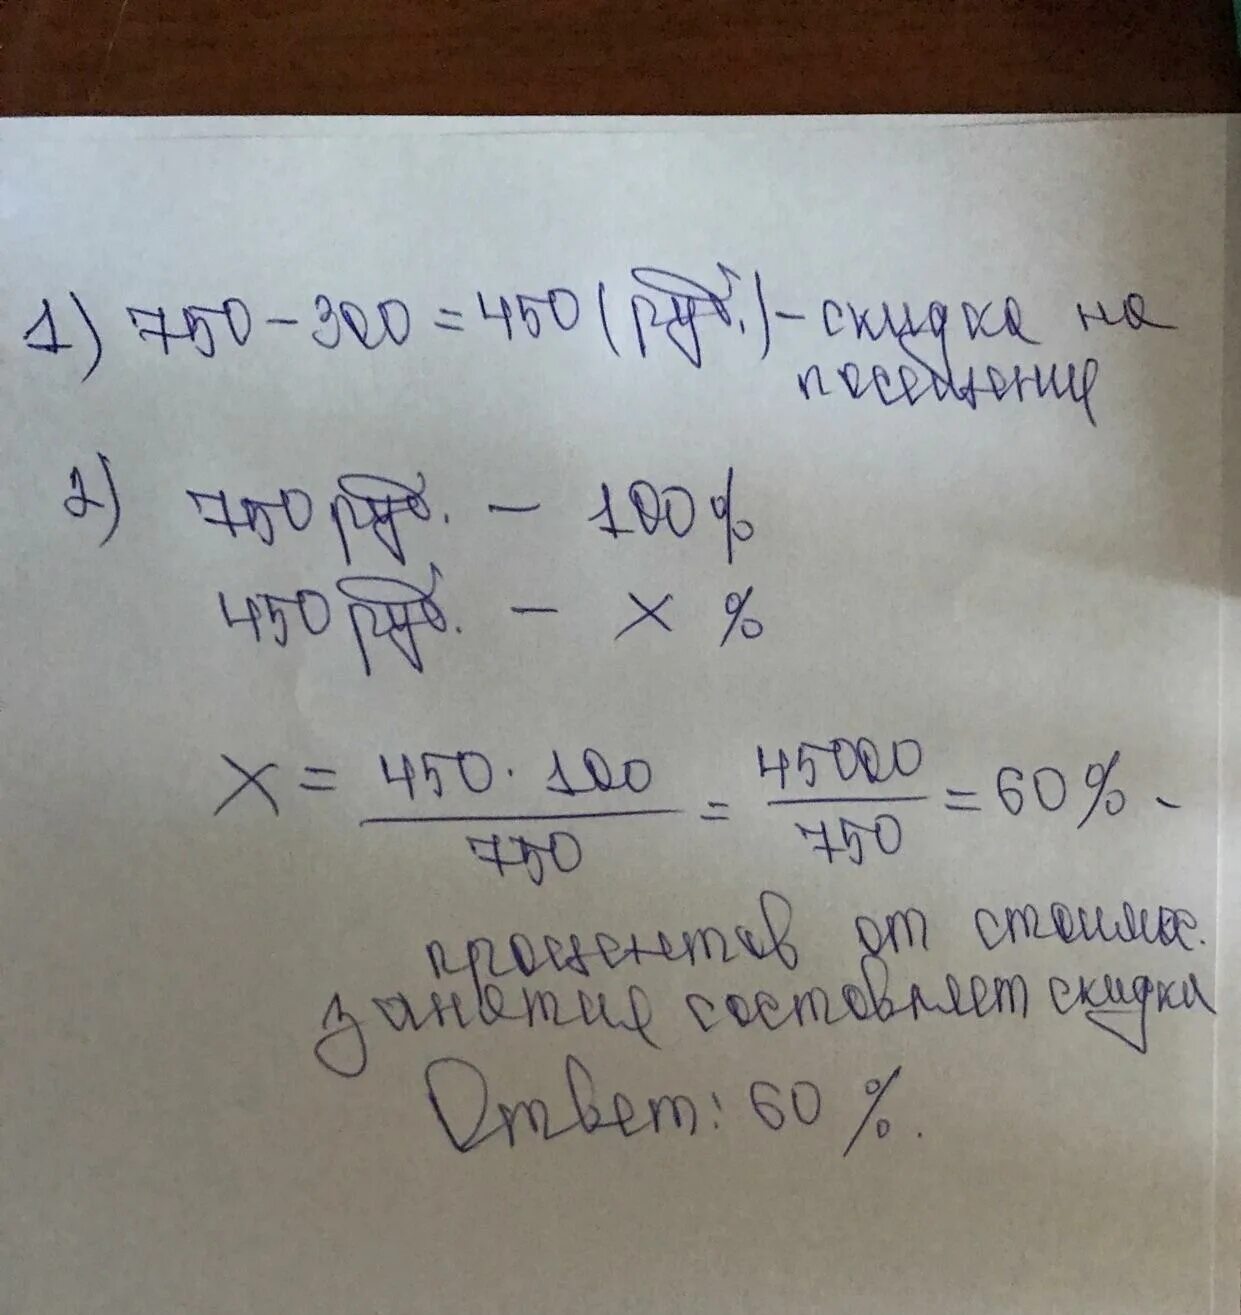 1) 750 - 300 = 450 (руб.) - скидка на
посещение
2) 750 руб. - 100 %
450 руб. - x %
x = 450 · 100 / 750 = 45000 / 750 = 60 % -
процентов от стоимос.
занятия составляет скидка
Ответ: 60 %.